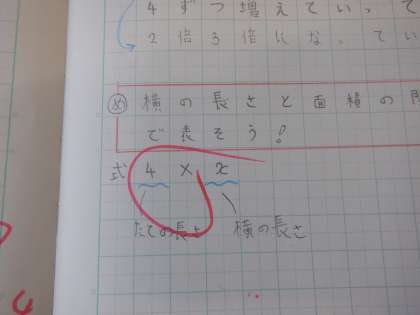 4ずつ増えていって
2倍3倍になっ てい
め 横の長さと面積の関
で表そう!
式 4 × x
たての長さ 横の長さ